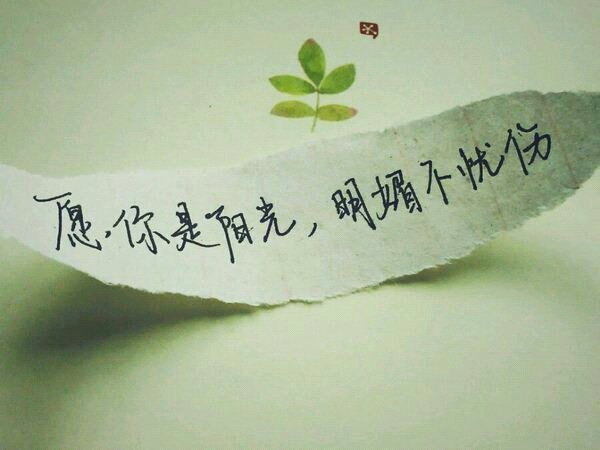 愿.你是阳光,明媚不忧伤